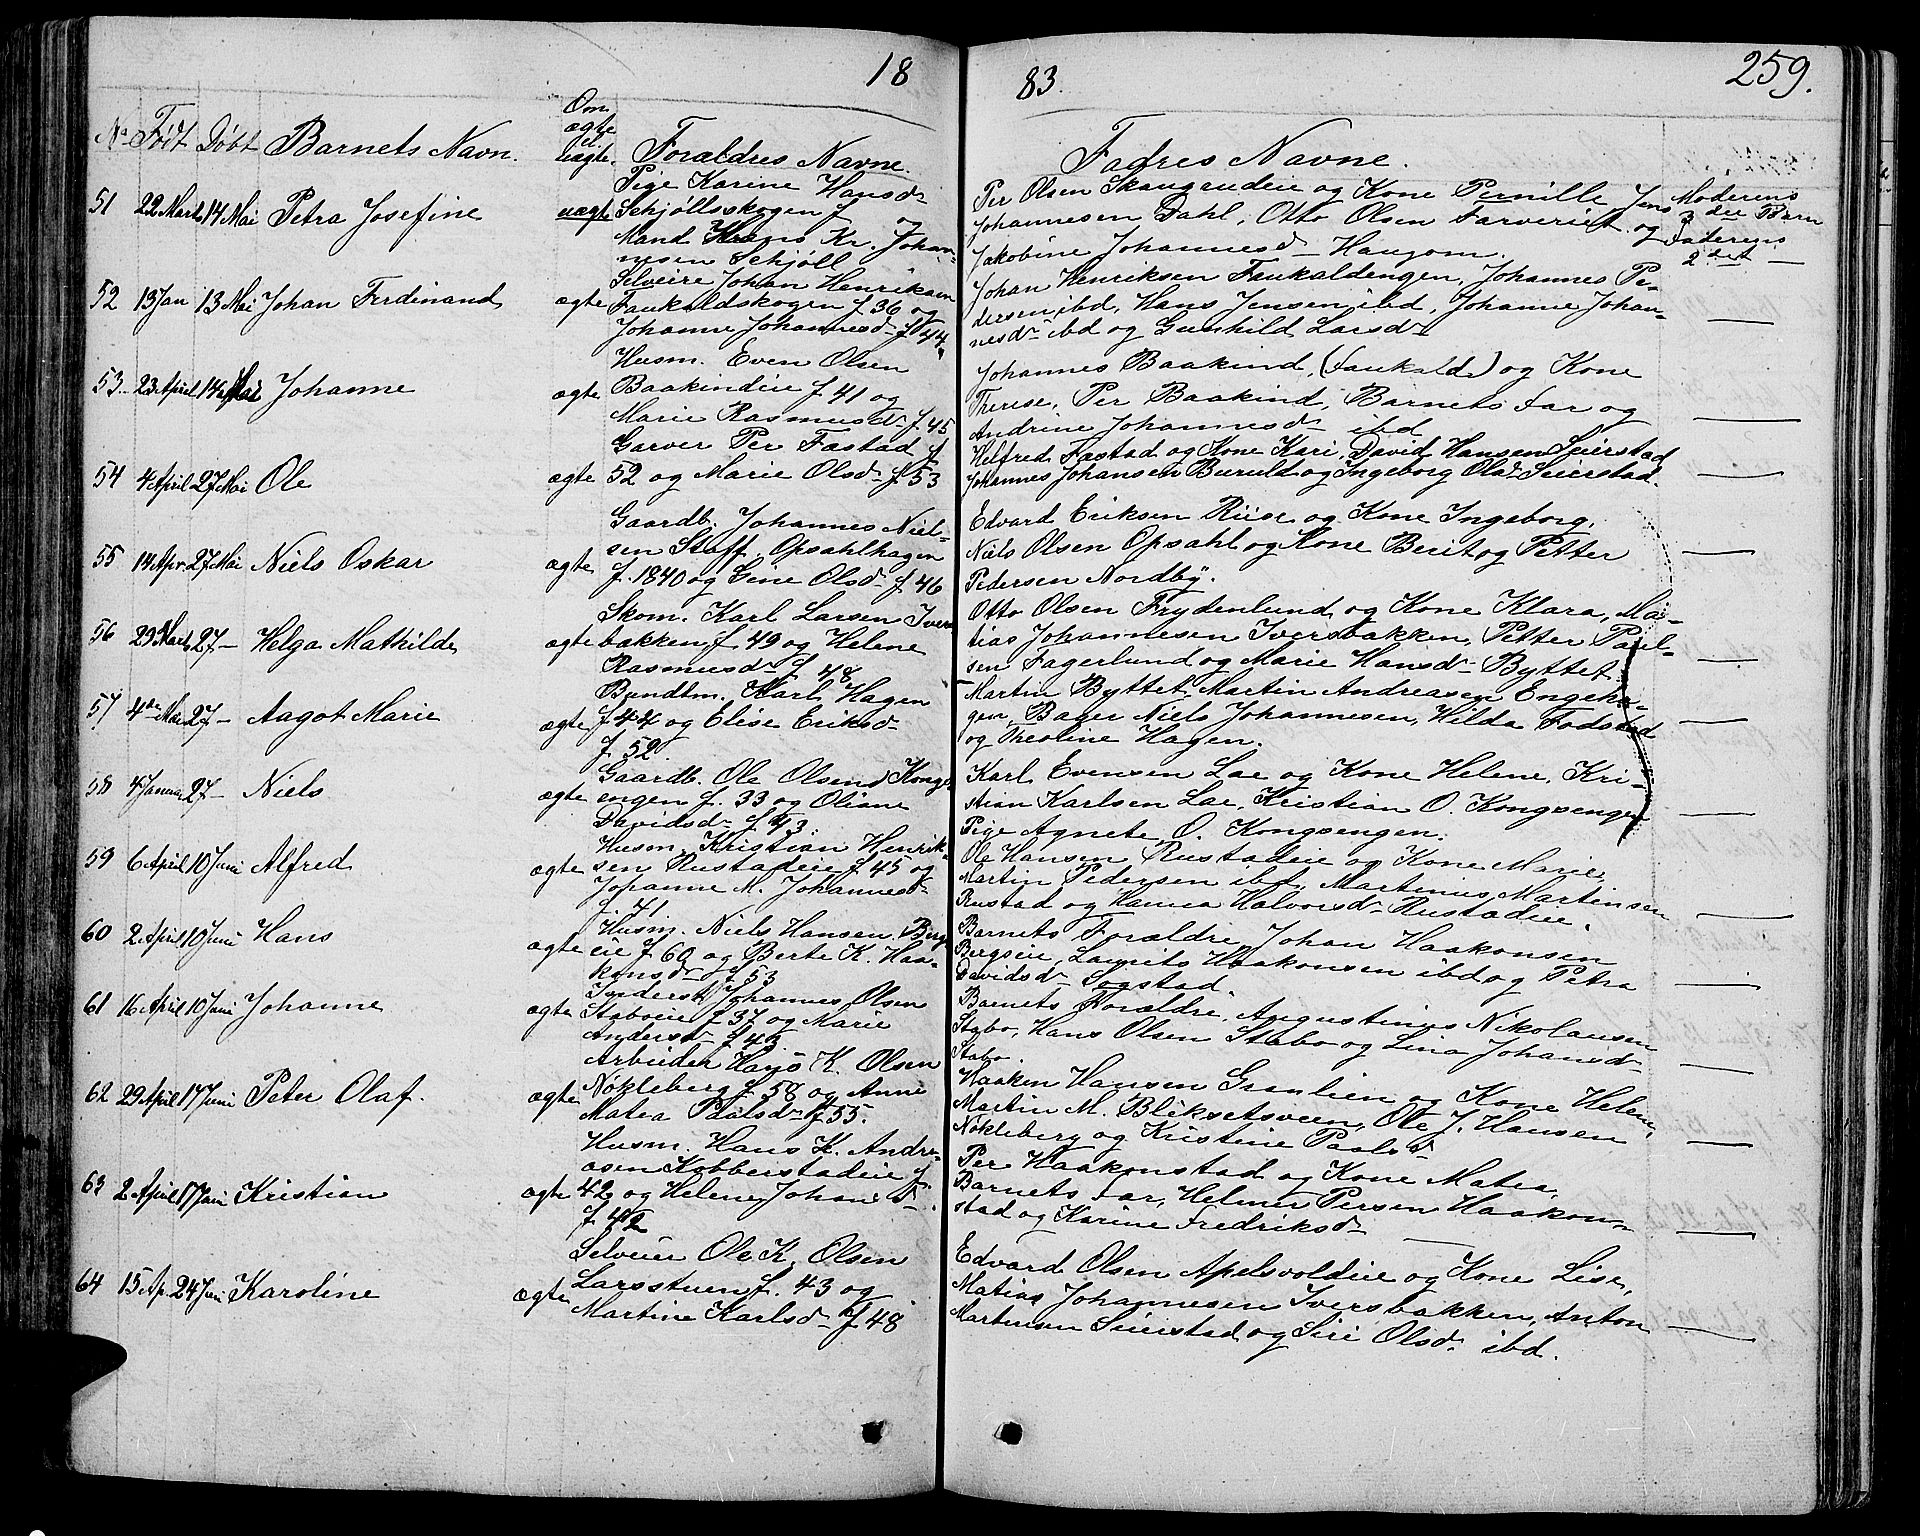 18
83.
259.
No Født Døbt Barnets Navn. Om ægte el. uægte. Forældres Navne. Fadres Navne.
51 22 Marts 14 Mai Petra Josefine uægte
Pige Karine Hansd
Schjøllskogen f og
Mand Kr. Johan-
nesen Schjøll
Per Olsen Skaugrudeie og Kone Pernille, Jens
Johannesen Dahl, Otto Olsen Farveriet og
Jakobine Johannesd Haugom.
Moderens
3die Barn
Faderens
2det
52 13 Jan 13 Mai Johan Ferdinand ægte
Selveier Johan Henriksen
Faukaldskogen f 36 og
Johanne Johannesd f 44.
Johan Henriksen Faukaldengen, Johannes Pe-
dersen ibd, Hans Jensen ibd, Johanne Johan-
nesd ibd og Gunhild Larsd
53. 23 April 14 Mai Johanne ægte
Husm. Even Olsen
Baakindeie f 41 og
Marie Rasmusd f. 45
Johannes Baakind, (Faukald) og Kone
Therese, Per Baakind, Barnets Far og
Andrine Johannesd ibd
54 4 April 27 Mai Ole ægte
Garver Per Fastad f
52 og Marie Olsd f 53
Helfred Fastad og Kone Kari, David Hansen Seierstad
Johannes Johansen Buruld og Ingeborg Olsd Seierstad.
55 14 Apr 27 Mai Niels Oskar ægte
Gaardb. Johannes Niel-
sen Staff, Opsahlhagen
f. 1840 og Gine Olsd f 46
Edvard Eriksen Riise og Kone Ingeborg,
Niels Olsen Opsahl og Kone Berit og Petter
Pedersen Nordby.
56 29 Marts 27 — Helga Mathilde ægte
Skom. Karl Larsen Ivers
bakken, f 49 og Helene
Rasmusd f 48
Otto Olsen Frydenlund og Kone Klara, Ma-
tias Johannesen Iversbakken, Petter Paul-
sen Fagerlund og Marie Hansd Byttet
57 4de Mai 27 — Aagot Marie ægte
Bundtm. Karl Hagen
f 44 og Elise Eriksd
f 52.
Martin Byttet, Martin Andreasen Engeha-
gen, Bager Niels Johannesen, Hilda Fodstad
og Theoline Hagen.
58 4 Januar 27 — Niels ægte
Gaardb. Ole Olsen Kongs
engen f. 33 og Oliane
Davidsd f 43.
Karl Evensen Lae og Kone Helene, Kri-
stian Karlsen Lae, Kristian O. Kongsengen
Pige Agnete O. Kongsengen.
59 6 April 10 Juni Alfred ægte
Husm. Kristian Henrik-
sen Rustadeie f 45 og
Johanne M. Johannesd
f. 41
Ole Hansen Rustadeie og Kone Marie,
Martin Pedersen ibd, Martinus Martinsen
Rustad og Hanna Halvorsd Rustadeie.
60 2 April 10 Juni Hans ægte
Husm. Niels Hansen Bergs
eie f 60 og Berte K. Haa-
konsd f. 53
Barnets Forældre, Johan Haakonsen
Bergseie, Laurits Haakonsen ibd og Petra
Davidsd Sogstad.
61 16 April 10 Juni Johanne ægte
Inderst Johannes Olsen
Staboeie f 37 og Marie
Andersd f 43
Barnets Forældre, Augustinus Nikolausen
Stabo, Hans Olsen Stabo og Lina Johansd
Stabo.
62 29 April 17 Juni Peter Olaf. ægte
Arbeider Hans K. Olsen
Nøkleberg f 58 og Anne
Matea Paalsd f 55.
Haaken Hansen Granlien og Kone Helene,
Martin M. Bliksetsveen, Ole J. Hansen
Nøkleberg og Kristine Paalsd
63 2 April 17 Juni Kristian ægte
Husm. Hans K. Andre-
asen Kobberstadeie f
42 og Helene Johansd
f 42
Per Haakonstad og Kone Matea,
Barnets Far, Helmer Persen Haakon-
stad og Karine Fredriksd
64 15 Ap. 24 Juni Karoline ægte
Selveier Ole K. Olsen
Larsstuen f. 43 og
Martine Karlsd f 48
Edvard Olsen Apelsvoldeie og Kone Lise,
Matias Johannesen Iversbakken, Anton
Martinsen Seierstad og Siri Olsd ibd.